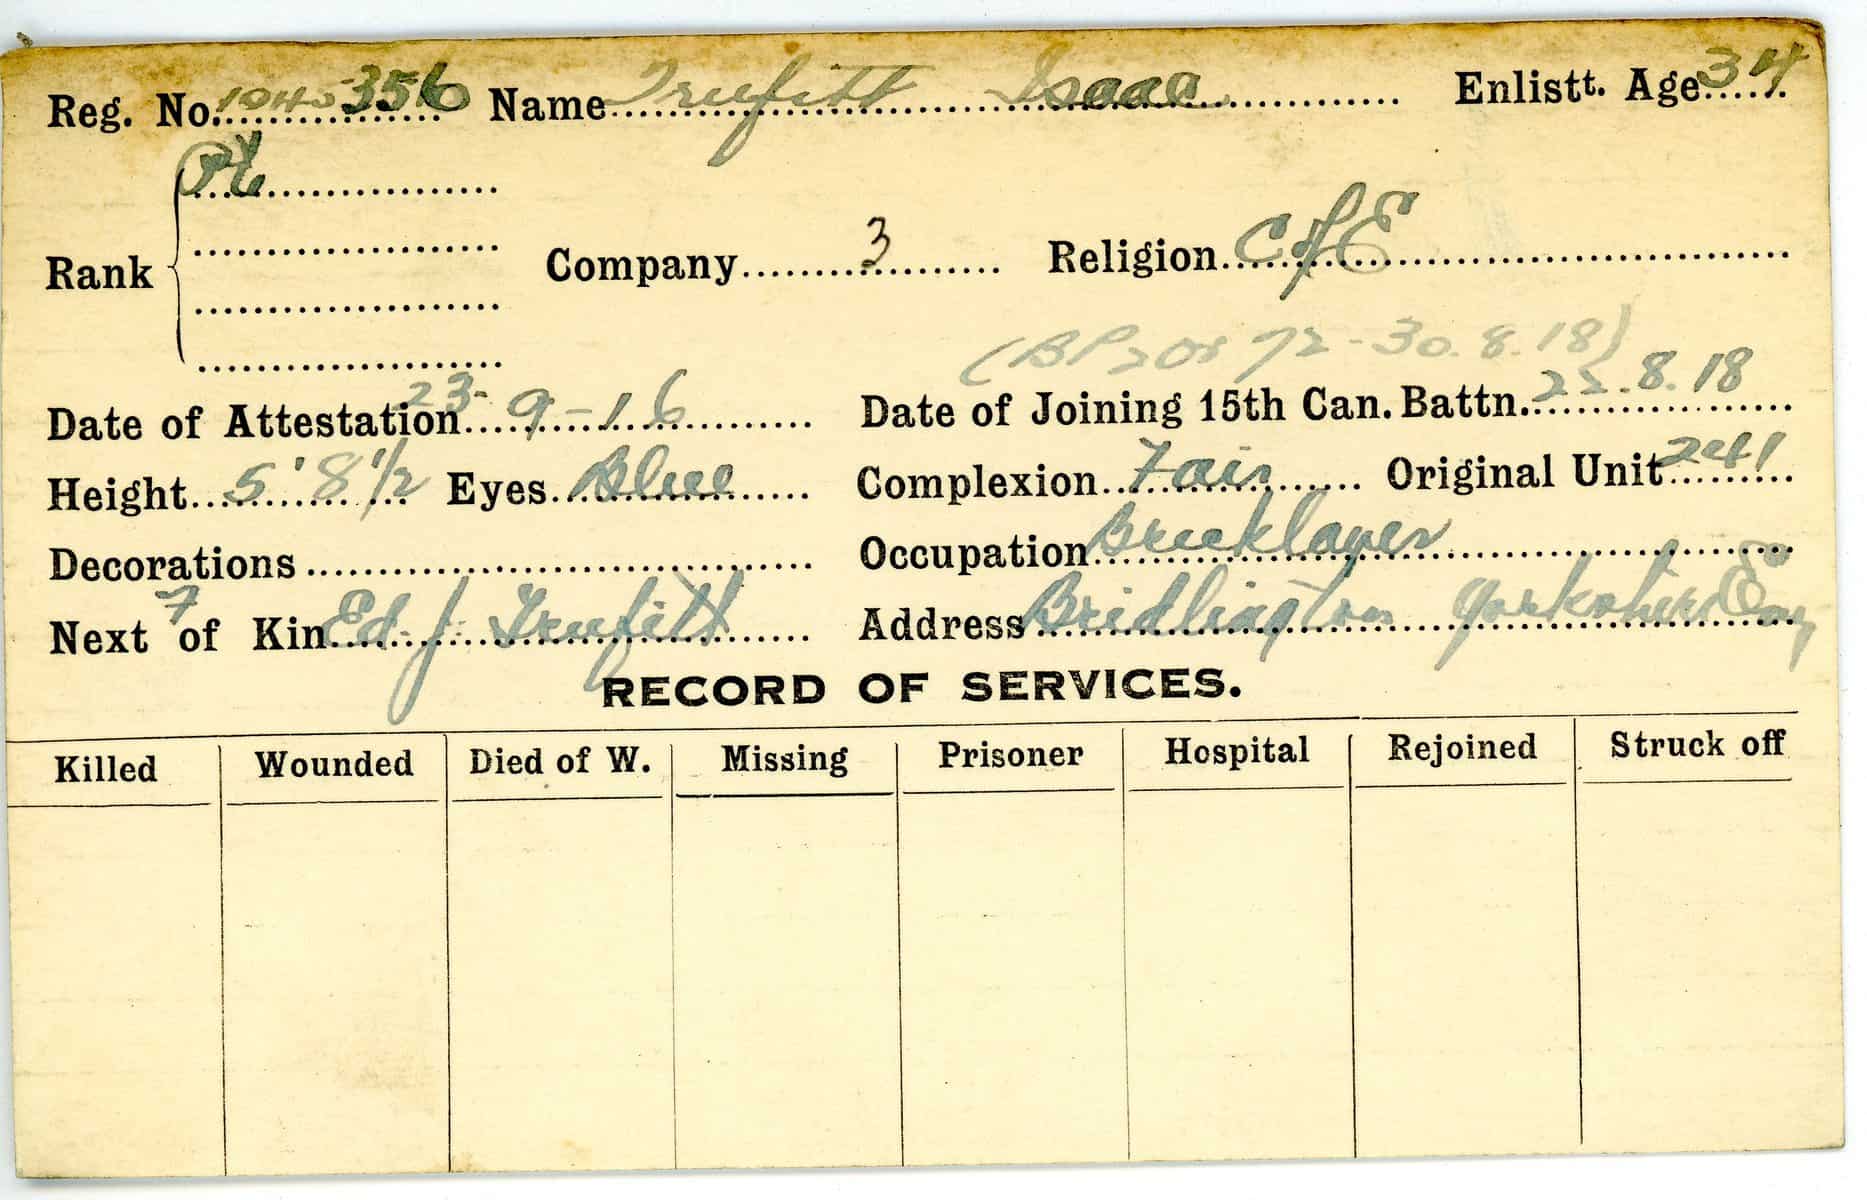 Reg. No. 1045356 Name Trufitt Isaac Enlistt. Age 34
Pte
Rank Company 3 Religion C of E
(BP2 Or 72-30.8.18)
Date of Attestation 23-9-16 Date of Joining 15th Can. Battn. 22.8.18
Height 5' 8 1/2 Eyes Blue Complexion Fair Original Unit 241
Decorations Occupation Bricklayer
Next of Kin F Ed. J. Trufitt Address Bridlington Yorkshire Eng
RECORD OF SERVICES.
Killed Wounded Died of W. Missing Prisoner Hospital Rejoined Struck off